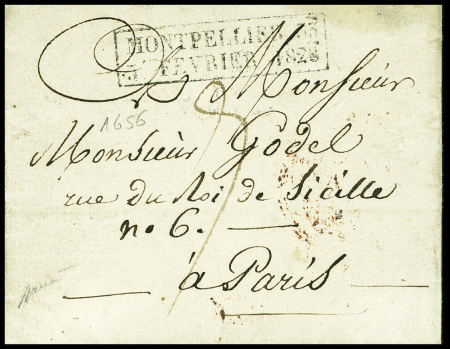 MONTPELLIER 33
FEVRIER 1828
A Monsieur
1656
Monsieur Godel
rue du Roi de Sicille
no 6.
à Paris